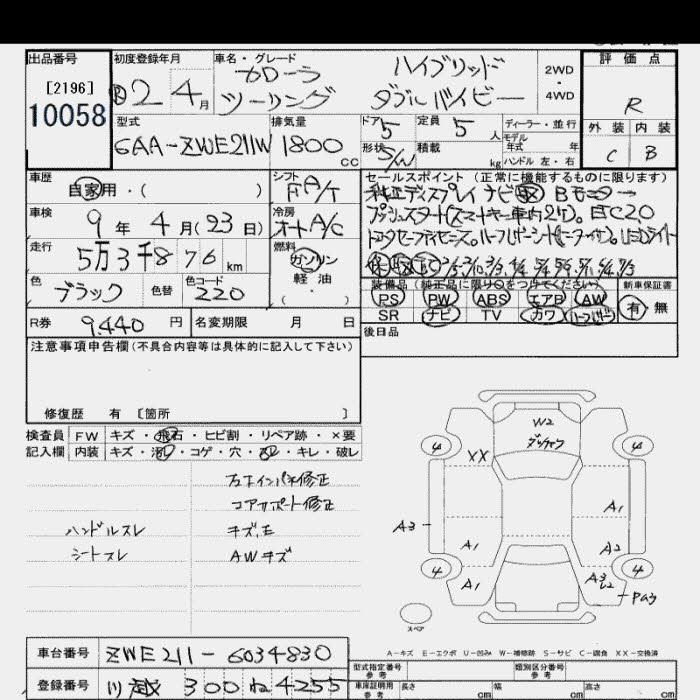 出品番号 初度登録年月 車名・グレード 評価点
[2196] Ⓡ2 4月 カローラ ハイブリッド 2WD・4WD R
10058 ツーリング ダブルバイビー
型式 排気量 ドア 定員 ディーラー・並行 外装 内装
6AA-ZWE211W 1800cc 5 5人 モデル年式 年 C B
形状 S/W 積載 kg ハンドル 左・右
車歴 シフト セールスポイント (正常に機能するものに限ります)
自家用・( ) F A/T 純正ディスプレイナビ Bモニター
車検 冷房 プッシュスタート(スマートキー車内2ケ)。ETC2.0
9年4月(23日) オートA/C トヨタセーフティセンス。LEDライト
走行 燃料
5万3千876km ガソリン
色 色替 色コード 軽油 装備品 (純正品に限り○をつけてください) 新車保証書
ブラック 220 ( ) PS PW ABS エアB AW 有・無
R券 9,440円 名変期限 月 日 SR ナビ TV カワ
後日品
注意事項申告欄 (不具合内容等は具体的に記入して下さい)
修復歴 有 [箇所 ]
検査員 FW キズ・飛石・ヒビ割・リペア跡・×要
記入欄 内装 キズ・汚レ・コゲ・穴・スレ・キレ・破レ
左インパネ修正
コアサポート修正
ハンドルスレ キズ、E
シートスレ AWキズ
W2
4 XX 4
A1
A3
A1 A2
4 A1 A3 U2 4
PA3
スペア
A-キズ E-エクボ U-凹み W-補修跡 S-サビ C-腐食 XX-交換済
車台番号 ZWE211-6034830 型式指定番号 参考 類別区分番号 参考
登録番号 川越 300 ね 4255 車庫証明用 参考 長さ cm 幅 cm 高さ cm